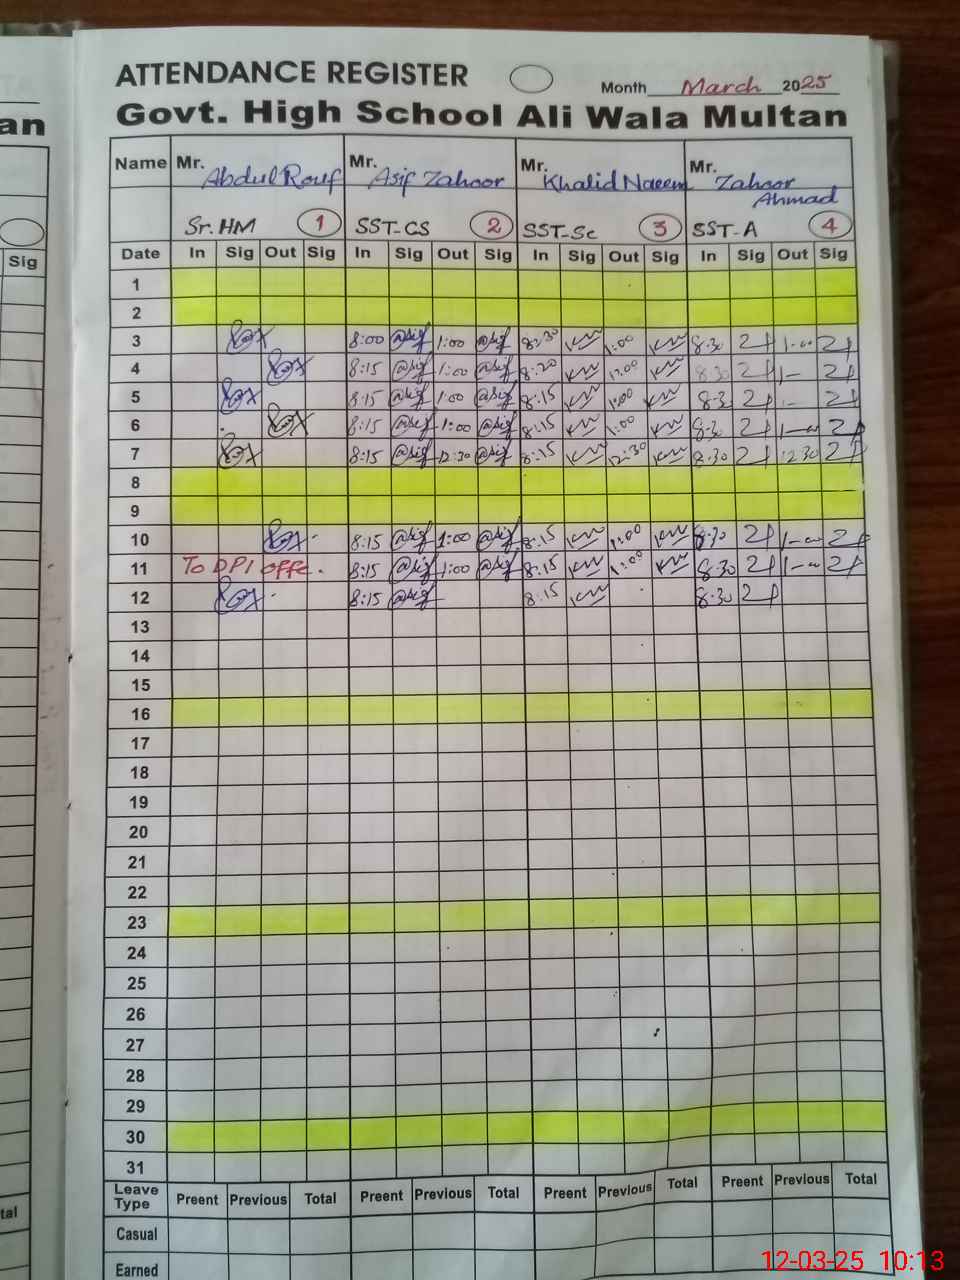 ATTENDANCE REGISTER
Month March 2025
Govt. High School Ali Wala Multan
an
Name Mr. Abdul Rouf Mr. Asif Zahoor Mr. Khalid Naeem Mr. Zahoor Ahmad
Sr. HM 1 SST-CS 2 SST-Sc 3 SST-A 4
Sig
Date In Sig Out Sig In Sig Out Sig In Sig Out Sig In Sig Out Sig
1
2
3 8:00 @sif 1:00 @sif 8:30 1:00 8.30
4 8:15 @sif 1:00 @sif 8:20 8.30
5 8:15 @sif 1:00 @sif 8:15 1:00 8.3
6 8:15 @sif 1:00 @sif 8:15 1:00 8.30
7 8:15 @sif 12:30 @sif 8:15 12:30 8.30 12.30
8
9
10 8:15 @sif 1:00 @sif 8:15 1:00 8.30
11 To DPI offe. 8:15 @sif 1:00 @sif 8:15 1:00 8.30
12 8:15 @sif 8:15 8.30
13
14
15
16
17
18
19
20
21
22
23
24
25
26
27
28
29
30
31
Leave Type Preent Previous Total Preent Previous Total Preent Previous Total Preent Previous Total
tal
Casual
Earned
12-03-25 10:13